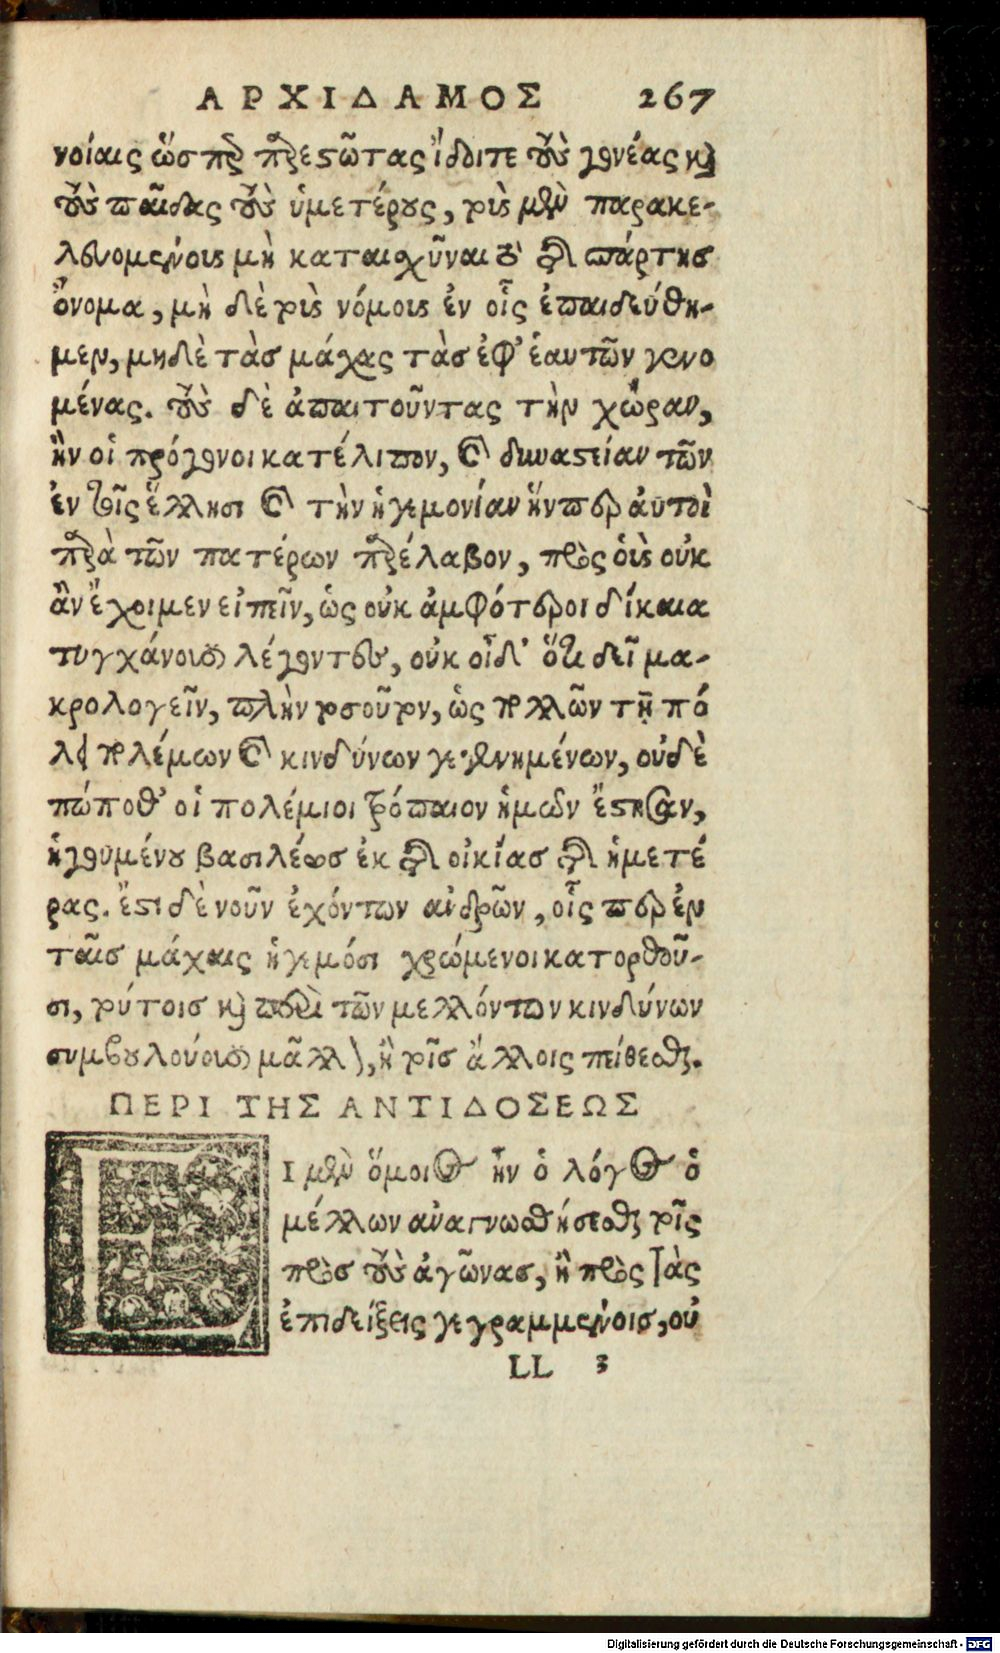 ΑΡΧΙΔΑΜΟΣ 267
νοίαις ὥσπερ παρεστῶτας ἴδοιτε τοὺς γονέας καὶ
τοὺς παῖδας τοὺς ὑμετέρους, τοὺς μὲν παρακε-
λευομένους μὴ καταισχῦναι τὸ τῆς σπάρτης
ὄνομα, μὴ δὲ τοὺς νόμους ἐν οἷς ἐπαιδεύθη-
μεν, μηδὲ τὰς μάχας τὰς ἐφ' ἑαυτῶν γενο
μένας. τοὺς δὲ ἀπαιτοῦντας τὴν χώραν,
ἣν οἱ πρόγονοι κατέλιπον, καὶ δυναστείαν τῶν
ἐν τοῖς ἕλλησι καὶ τὴν ἡγεμονίαν ἥνπερ αὐτοὶ
παρὰ τῶν πατέρων παρέλαβον, πρὸς οὓς οὐκ
ἂν ἔχοιμεν εἰπεῖν, ὡς οὐκ ἀμφότεροι δίκαια
τυγχάνουσι λέγοντες, οὐκ οἶδ' ὅτι δεῖ μα-
κρολογεῖν, πλὴν τοσοῦτον, ὡς πολλῶν τῇ πό
λει πολέμων καὶ κινδύνων γεγενημένων, οὐδὲ
πώποθ' οἱ πολέμιοι τρόπαιον ἡμῶν ἔστησαν,
ἡγουμένου βασιλέως ἐκ τῆς οἰκίας τῆς ἡμετέ
ρας. ἔστι δὲ νοῦν ἐχόντων ἀνδρῶν, οἷς περ ἐν
ταῖς μάχαις ἡγεμόσι χρώμενοι κατορθοῦ-
σι, τούτοις καὶ περὶ τῶν μελλόντων κινδύνων
συμβουλεύουσι μᾶλλον, ἢ τοῖς ἄλλοις πείθεσθαι.
ΠΕΡΙ ΤΗΣ ΑΝΤΙΔΟΣΕΩΣ
ΕΙ μὲν ὅμοιος ἦν ὁ λόγος ὁ
μέλλων ἀναγνωσθήσεσθαι τοῖς
πρὸς τοὺς ἀγῶνας, ἢ πρὸς τὰς
ἐπιδείξεις γεγραμμένοις, οὐ
LL 3
Digitalisierung gefördert durch die Deutsche Forschungsgemeinschaft - DFG